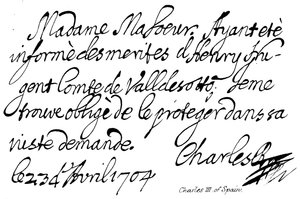 Madame Ma Soeur. Ayant etè
informè des merites d'Henry Nu-
gent Comte de Valldesotto, Je me
trouve obligè de le proteger dans sa
juste demande.
le 23d Avril 1704 Charles
Charles III of Spain